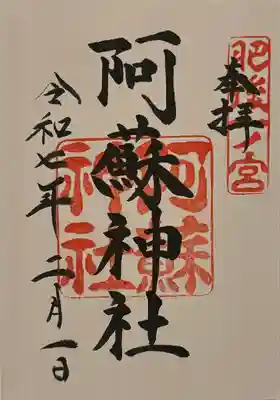 肥後一ノ宮
奉拝
阿蘇神社
阿蘇
神社
令和七年二月一日